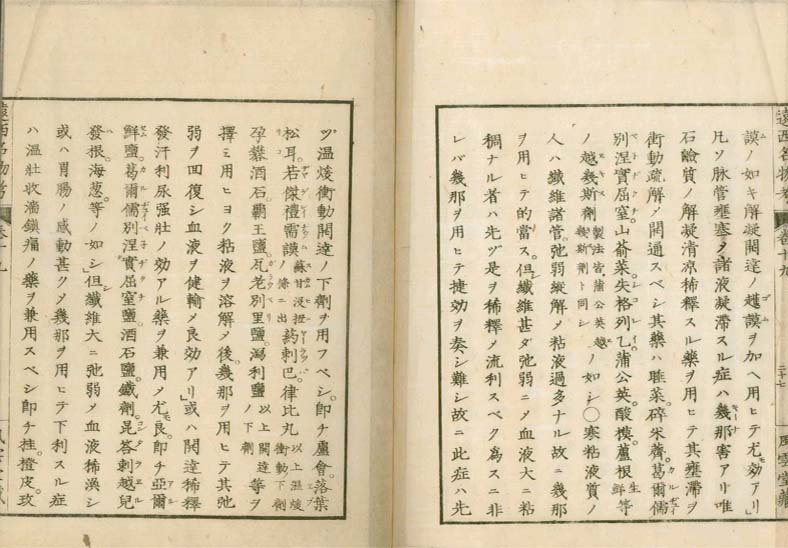 遠西名物考
巻十九
二十七
風雲堂藏
謨ノ如キ解凝開達ノ越謨ヲ加ヘ用ヒテ尤效アリ」
凡ソ脉管壅塞メ諸液凝滯スル症ハ幾那害アリ唯
石鹼質ノ解凝清凉稀釋スル藥ヲ用ヒテ其壅滯ヲ
衝動疏解メ開通スベシ其藥ハ睡菜。碎米薺。葛爾儒
別涅實屈窒。山葥菜。失格列乙。蒲公英。酸模。蘆根生鮮等
ノ越幾斯劑製法皆蒲公英越幾斯劑ト同シノ如シ○寒粘液質ノ
人ハ纖維諸管。弛弱縱解メ粘液過多ナル故ニ幾那
ヲ用ヒテ的當ス。但纖維甚ダ弛弱ニメ血液大ニ粘
稠ナル者ハ先ヅ是ヲ稀釋メ流利スベク為スニ非
レバ幾那ヲ用ヒテ捷効ヲ奏シ難シ故ニ此症ハ先
ヅ温㷟衝動開達ノ下劑ヲ用フベシ。即チ蘆會。落葉
松耳。若傑禮需謨蘇甘没扭ノ條ニ出葯剌巴。律比丸以上温㷟衝動下劑
孕鰲酒石。覇王鹽。瓦老別里鹽。瀉利鹽以上開達ノ下劑等ヲ
擇ミ用ヒヨク粘液ヲ溶解メ後。幾那ヲ用ヒテ其弛
弱ヲ回復シ血液ヲ健輸メ良効アリ」或ハ開達稀釋
發汗利尿强壯ノ効アル藥ヲ兼用メ尤良。即チ亞爾
鮮鹽。葛爾儒別涅實屈窒鹽。酒石鹽。鐵劑。昆答剌越兒
發根。海葱。等ノ如シ」但纖維大ニ弛弱メ血液稀渙シ
或ハ胃腸ノ感動甚クメ幾那ヲ用ヒテ下利スル症
ハ温壯收濇鎭痛ノ藥ヲ兼用スベシ即チ桂。橙皮。玫
遠西名物考
巻十九